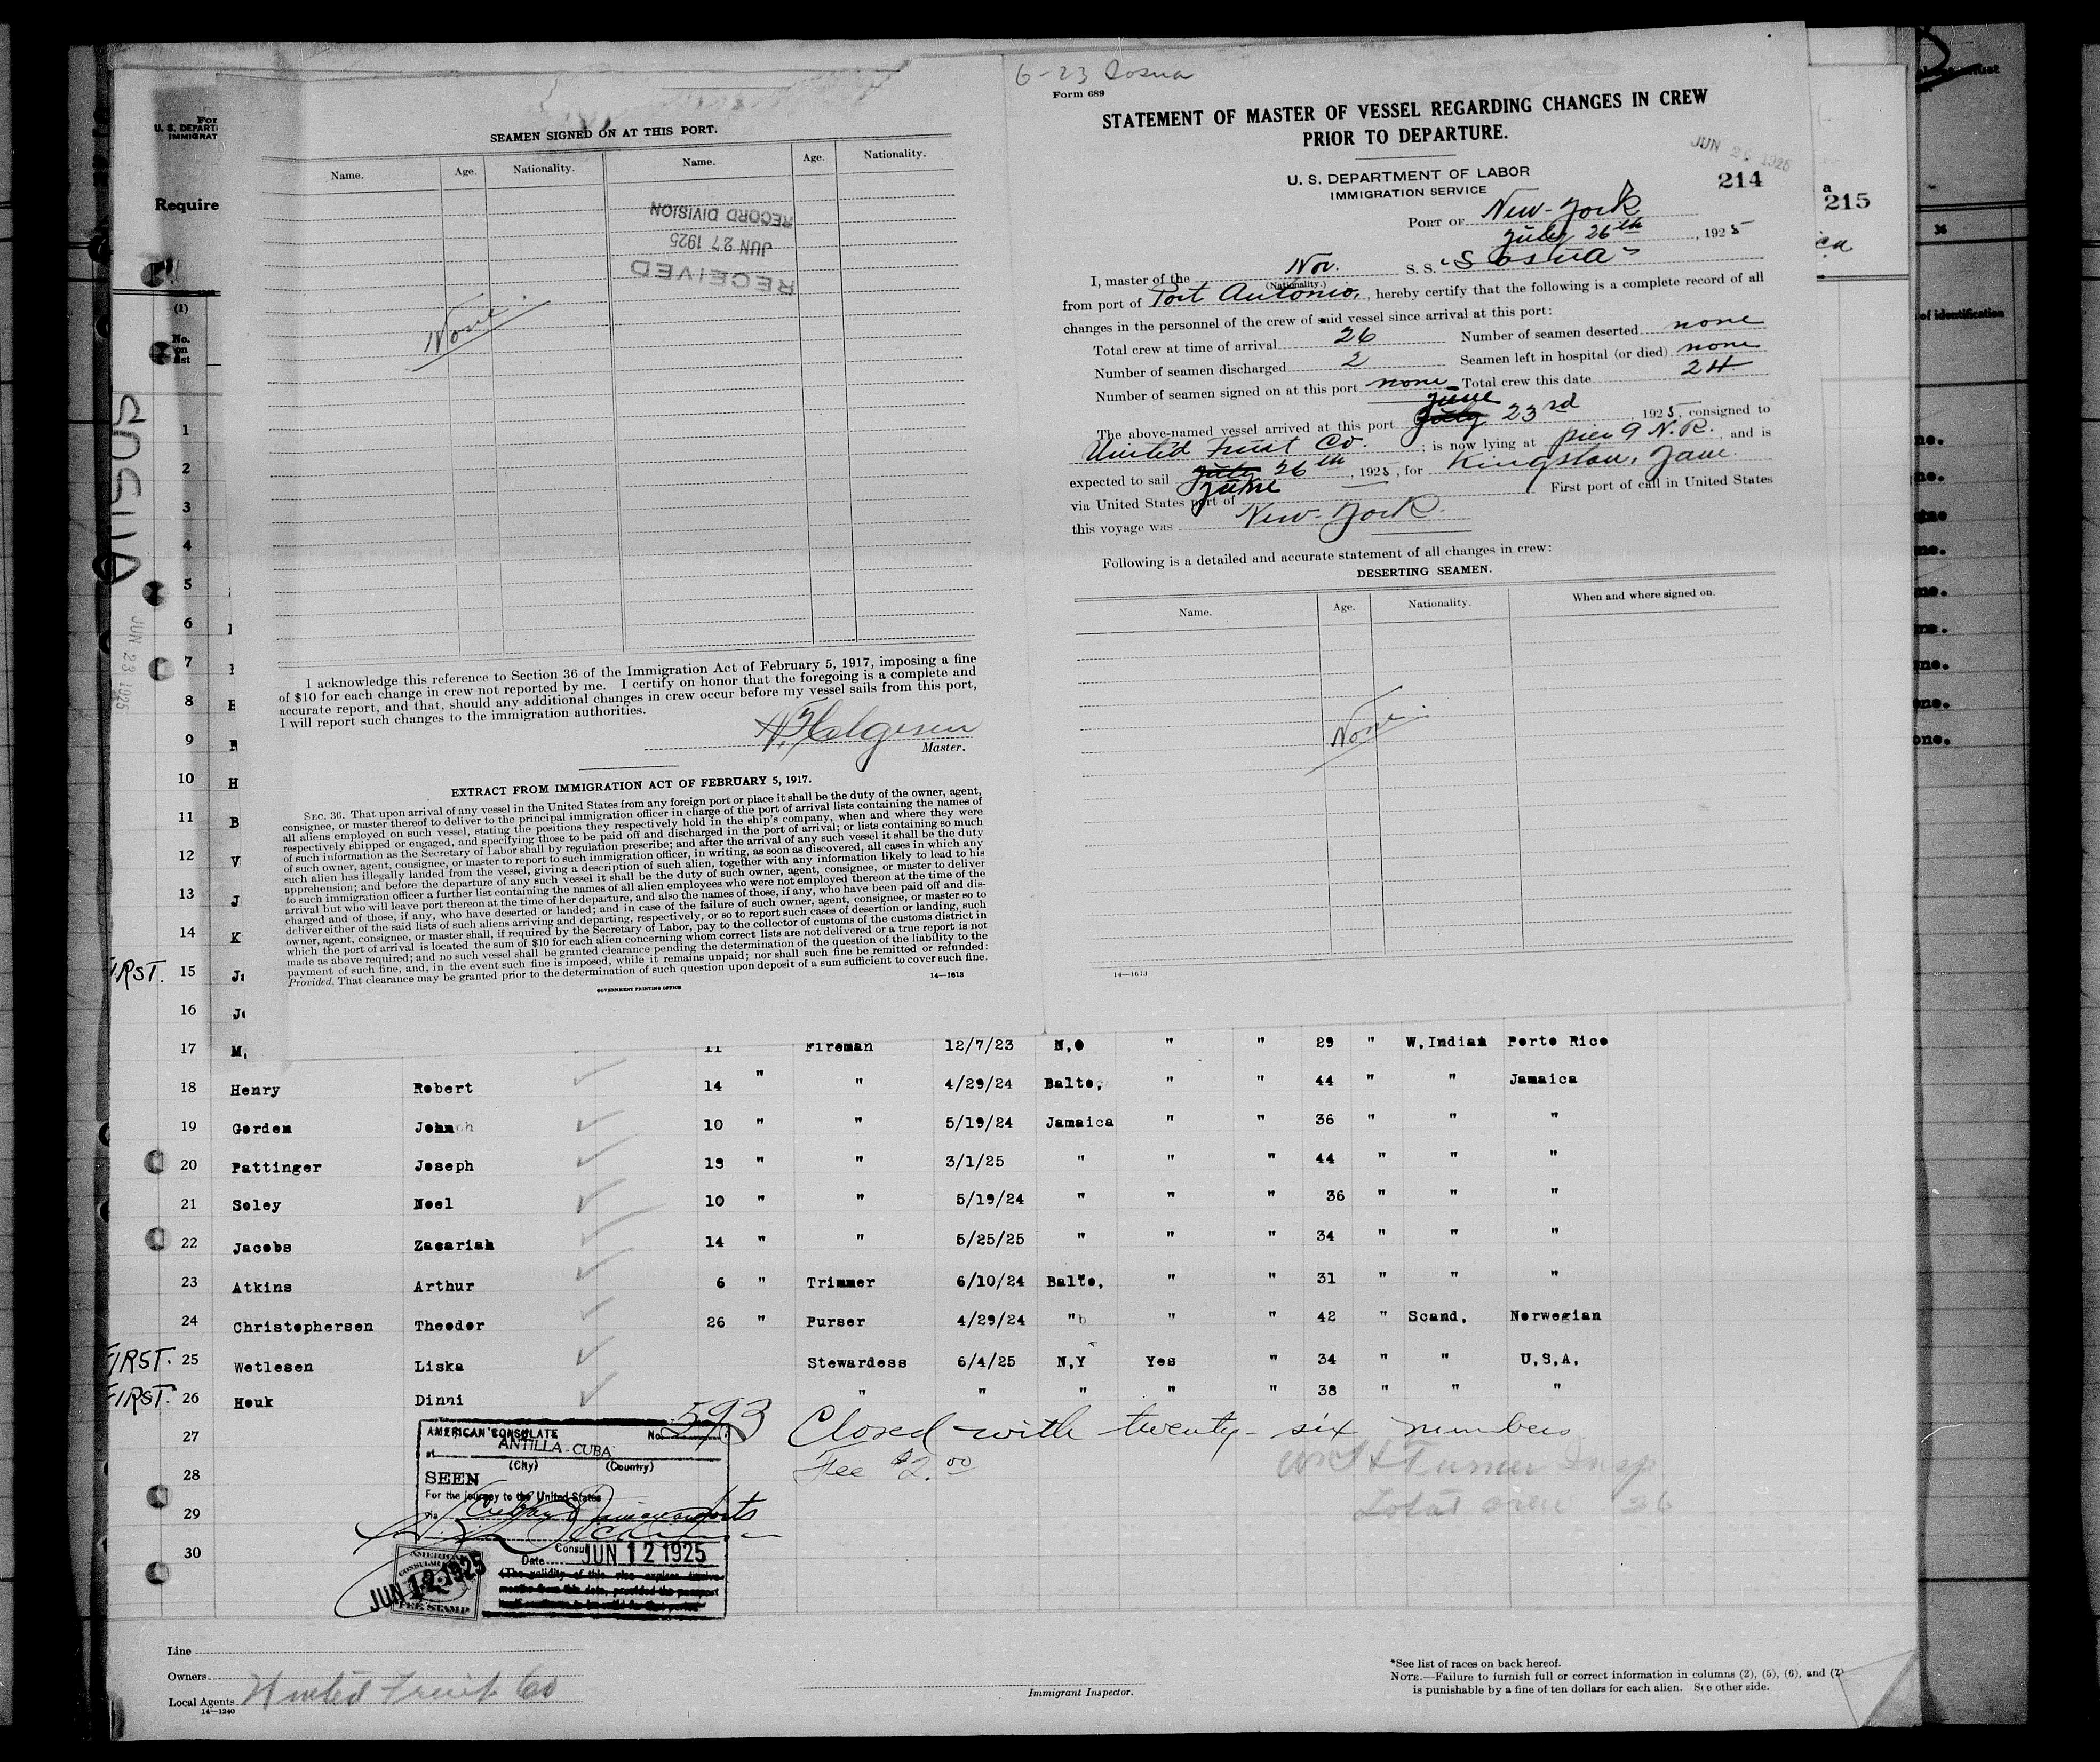 For
U. S. DEPARTI
IMMIGRAT
Require
(1)
No.
on
list
SOSUA
JUN 23 1925
SEAMEN SIGNED ON AT THIS PORT.
Name. Age. Nationality. Name. Age. Nationality.
RECEIVED
JUN 27 1925
RECORD DIVISION
None
I acknowledge this reference to Section 36 of the Immigration Act of February 5, 1917, imposing a fine
of $10 for each change in crew not reported by me. I certify on honor that the foregoing is a complete and
accurate report, and that, should any additional changes in crew occur before my vessel sails from this port,
I will report such changes to the immigration authorities.
Helgesen
Master.
EXTRACT FROM IMMIGRATION ACT OF FEBRUARY 5, 1917.
SEC. 36. That upon arrival of any vessel in the United States from any foreign port or place it shall be the duty of the owner, agent,
consignee, or master thereof to deliver to the principal immigration officer in charge of the port of arrival lists containing the names of
all aliens employed on such vessel, stating the positions they respectively hold in the ship's company, when and where they were
respectively shipped or engaged, and specifying those to be paid off and discharged in the port of arrival; or lists containing so much
of such information as the Secretary of Labor shall by regulation prescribe; and after the arrival of any such vessel it shall be the duty
of such owner, agent, consignee, or master to report to such immigration officer, in writing, as soon as discovered, all cases in which any
such alien has illegally landed from the vessel, giving a description of such alien, together with any information likely to lead to his
apprehension; and before the departure of any such vessel it shall be the duty of such owner, agent, consignee, or master to deliver
to such immigration officer a further list containing the names of all alien employees who were not employed thereon at the time of the
arrival but who will leave port thereon at the time of her departure, and also the names of those, if any, who have been paid off and dis-
charged and of those, if any, who have deserted or landed; and in case of the failure of such owner, agent, consignee, or master so to
deliver either of the said lists of such aliens arriving and departing, respectively, or so to report such cases of desertion or landing, such
owner, agent, consignee, or master shall, if required by the Secretary of Labor, pay to the collector of customs of the customs district in
which the port of arrival is located the sum of $10 for each alien concerning whom correct lists are not delivered or a true report is not
made as above required; and no such vessel shall be granted clearance pending the determination of the question of the liability to the
payment of such fine, and, in the event such fine is imposed, while it remains unpaid; nor shall such fine be remitted or refunded:
Provided, That clearance may be granted prior to the determination of such question upon deposit of a sum sufficient to cover such fine.
14—1613
GOVERNMENT PRINTING OFFICE
6-23 Sosua
Form 689
STATEMENT OF MASTER OF VESSEL REGARDING CHANGES IN CREW
PRIOR TO DEPARTURE.
JUN 26 1925
U. S. DEPARTMENT OF LABOR
IMMIGRATION SERVICE
214
PORT OF New-York
July 26th, 1925
I, master of the Nor. S. S. "Sosua"
(Nationality.)
from port of Port Antonio, hereby certify that the following is a complete record of all
changes in the personnel of the crew of said vessel since arrival at this port:
Total crew at time of arrival 26 Number of seamen deserted none
Number of seamen discharged 2 Seamen left in hospital (or died) none
Number of seamen signed on at this port none Total crew this date 24
The above-named vessel arrived at this port July June 23rd, 1925, consigned to
United Fruit Co. ; is now lying at pier 9 N.R. and is
expected to sail July June 26th, 1925, for Kingston, Jam.
via United States port of First port of call in United States
this voyage was New-York.
Following is a detailed and accurate statement of all changes in crew:
DESERTING SEAMEN.
Name. Age. Nationality. When and where signed on.
None
14—1613
a
215
ca
36
of identification
1
2
3
4
5
6
7
8
9
10 H
11 B
12 V
13 J
14 K
FIRST. 15
16
17 M, 11 Fireman 12/7/23 N,O " " 29 " W,Indian Porto Rico
18 Henry Robert 14 " " 4/29/24 Balto, " " 44 " " Jamaica
19 Gordon John 10 " " 5/19/24 Jamaica " " 36 " " "
20 Pattinger Joseph 19 " " 3/1/25 " " " 44 " " "
21 Soley Noel 10 " " 5/19/24 " " " 36 " " "
22 Jacobs Zacariah 14 " " 5/25/25 " " " 34 " " "
23 Atkins Arthur 6 " Trimmer 6/10/24 Balto, " " 31 " " "
24 Christophersen Theodor 26 " Purser 4/29/24 " " " 42 " Scand, Norwegian
FIRST. 25 Wetlesen Liska Stewardess 6/4/25 N,Y Yes " 34 " " U,S,A,
FIRST. 26 Houk Dinni " " " " " 38 " " "
27
28
29
30
AMERICAN CONSULATE No. 593
at ANTILLA - CUBA
(City) (Country)
SEEN
For the journey to the United States
via
Consul
Date JUN 12 1925
(The validity of this visa expires twelve
months from this date, provided the passport
itself continues to be valid for that period)
AMERICAN
CONSULAR
FEE STAMP
JUN 12 1925
Closed with twenty-six numbers
Fee $2.00
Turner Insp
Total crew 26
Line
Owners
Local Agents United Fruit Co
14—1240
Immigrant Inspector.
*See list of races on back hereof.
NOTE.—Failure to furnish full or correct information in columns (2), (5), (6), and (7)
is punishable by a fine of ten dollars for each alien. See other side.